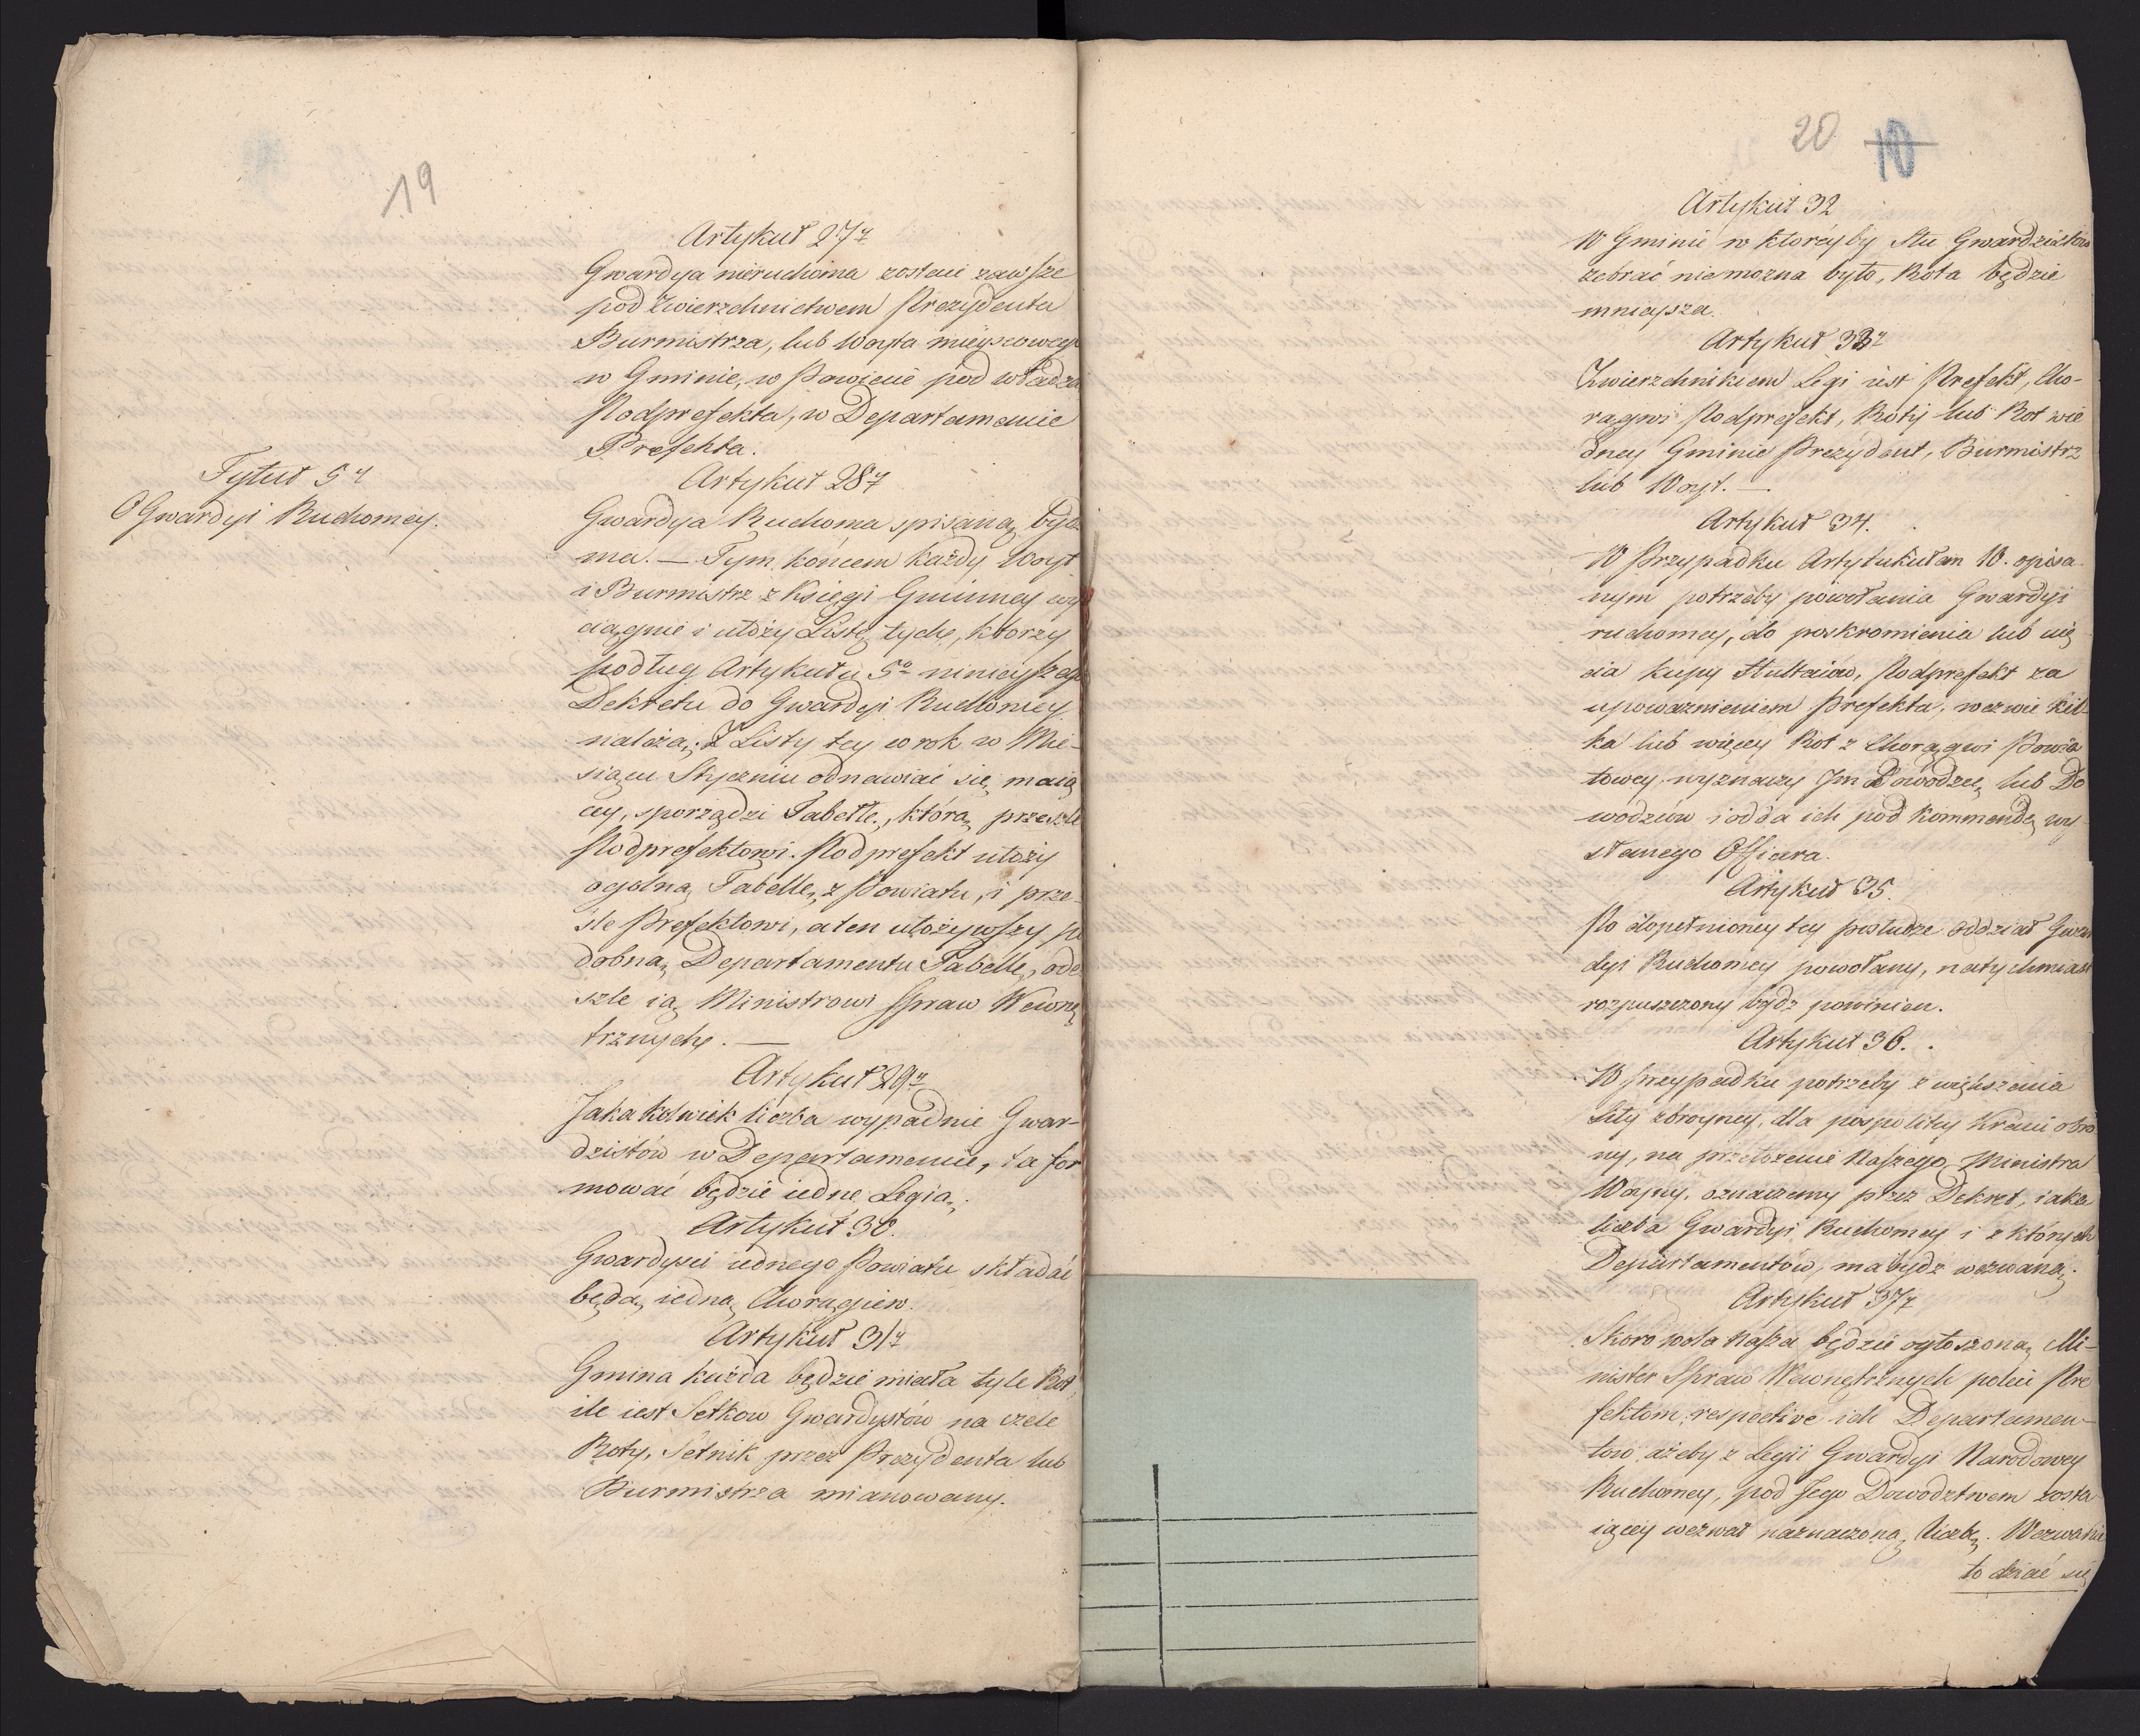 19
Artykuł 27y
Gwardya nieruchoma zostaie zawsze
pod zwierzchnictwem Prezydenta
Burmistrza, lub Woyta mieyscowego
w Gminie, w Powiecie pod władzą
Podprefekta, w Departamencie
Prefekta.
Tytuł 5y
O Gwardyi Ruchomey.
Artykuł 28y
Gwardya Ruchoma spisaną bydź
ma. — Tym końcem każdy Woyt
i Burmistrz z Księgi Gminney wy
ciągnie i ułoży Listę tych, ktorzy
podług Artykułu 5o ninieyszego
Dekretu do Gwardyi Ruchomey
należą; Z Listy tey co rok w Mie-
siącu Styczniu odnawiać się maią
cey, sporządzi Tabellę, którą prześle
Podprefektowi. Podprefekt ułoży
ogolną Tabellę z Powiatu, i prze-
śle Prefektowi, a ten ułożywszy po
dobną Departamentu Tabellę, ode
szle ią Ministrowi Spraw Wewnę
trznych. —
Artykuł 29y
Jakakolwiek liczba wypadnie Gwar-
dzistów w Departamencie, ta for
mować będzie iedne Legią.
Artykuł 30.
Gwardyści iednego Powiatu składać
będą iedną Chorągiew.
Artykuł 31y
Gmina każda będzie miała tyle Rot
ile iest Setkow Gwardystów na czele
Roty, Setnik przez Prezydenta lub
Burmistrza mianowany.
20 10
Artykuł 32
W Gminie w ktoreyby Stu Gwardzistow
zebrać niemożna było, Rota będzie
mnieysza.
Artykuł 33y
Zwierzchnikiem Legi iest Prefekt, Cho-
rągwi Podprefekt, Roty lub Rot wie
dney Gminie Prezydent, Burmistrz
lub Woyt. —
Artykuł 34.
W Przypadku Artytukułam 10. opisa-
nym potrzeby powołania Gwardyi
ruchomey, do poskromienia lub uię
cia kupy Hultaiów, Podprefekt za
upoważnieniem Prefekta, wezwie kil-
ka lub więcey Rot z Chorągwi Powia
towey, wyznaczy Jm Dowodzcę, lub Do
wodzców i odda ich pod kommendę wy-
słanego Officera.
Artykuł 35.
Po dopełnioney tey posłudze oddział Gwar
dyi Ruchomey powołany, natychmiast
rozpuszczony bydź powinien.
Artykuł 36.
W przypadku potrzeby zwiększenia
Siły zbroyney, dla pospolitey Kraiu obro
ny, na przełożenie Naszego Ministra
Woyny, oznaczemy przez Dekret, iaka
liczba Gwardyi Ruchomey i z których
Departamentów, ma bydź wezwaną.
Artykuł 37y
Skoro wola Nasza będzie ogłoszoną Mi-
nister Spraw Wewnętrznych poleci Pre
fektom, respective ich Departamen-
tow, ażeby z Legii Gwardyi Narodowey
Ruchomey, pod Jego Dowodztwem zosta
iącey wezwał naznaczoną liczbę. Wezwanie
to dziać się